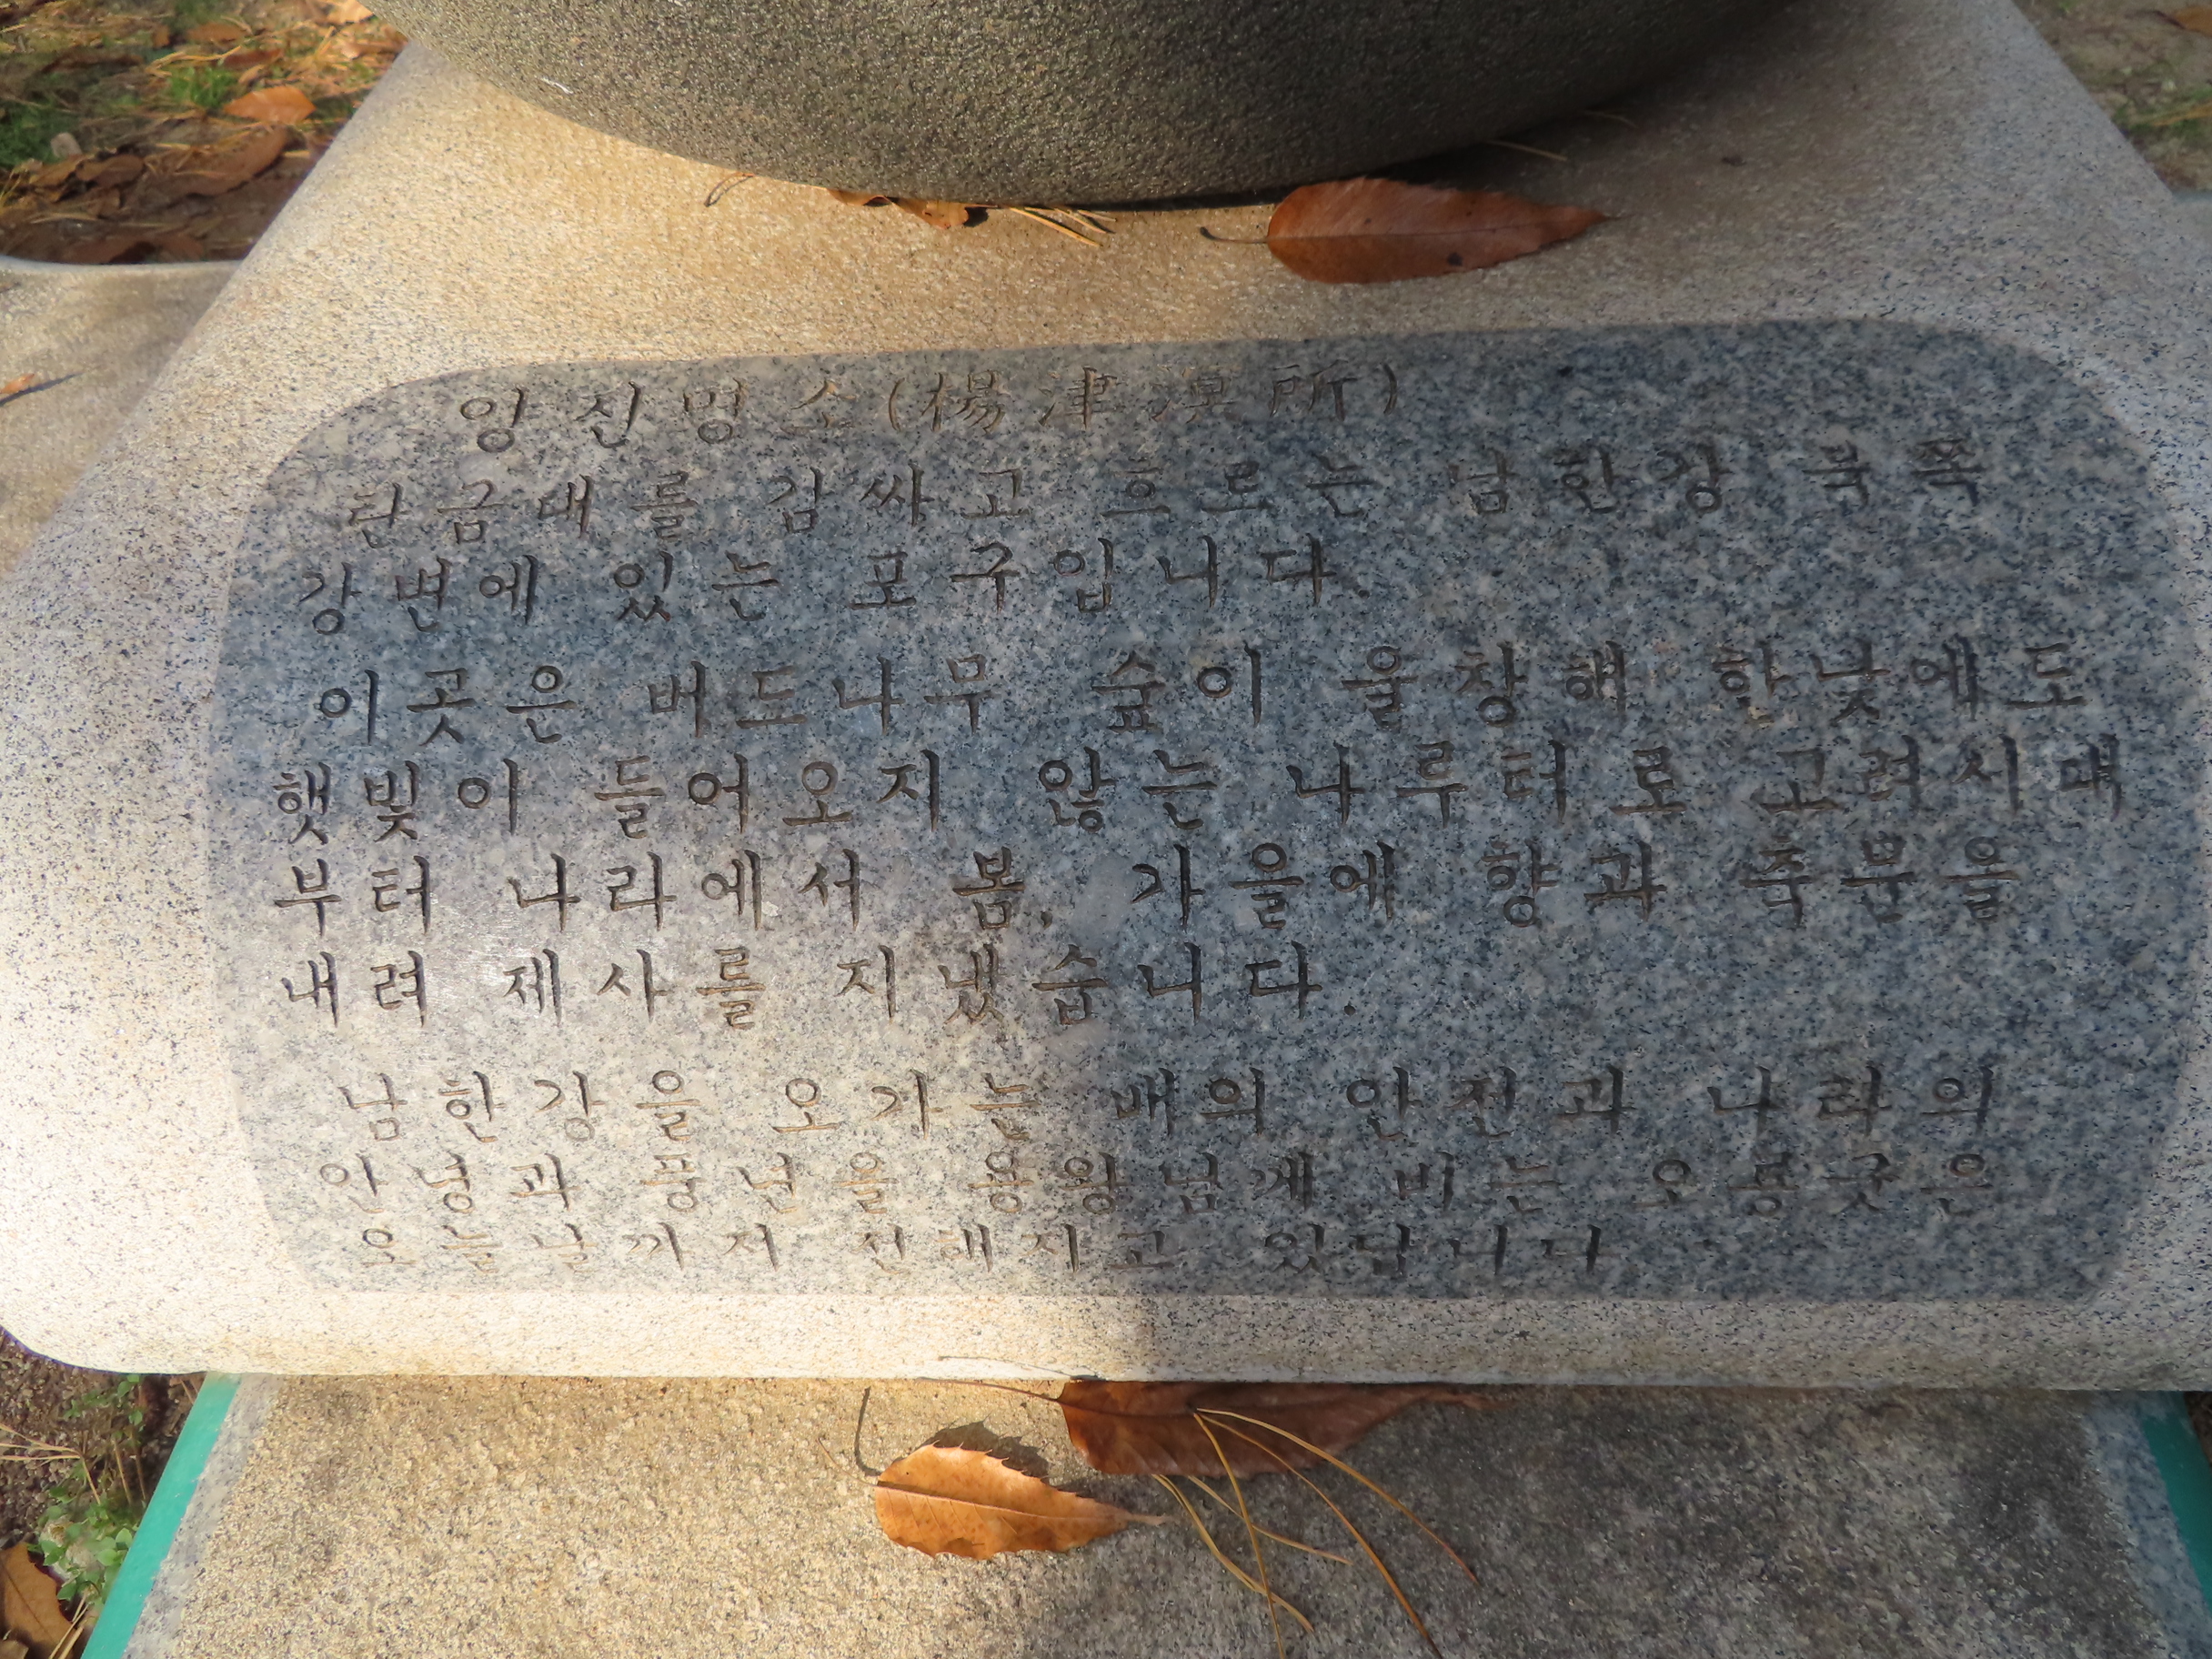 양진명소(楊津溟所)
탄금대를 감싸고 흐르는 남한강 북쪽
강변에 있는 포구입니다.
이곳은 버드나무 숲이 울창해 한낮에도
햇빛이 들어오지 않는 나루터로 고려시대
부터 나라에서 봄, 가을에 향과 축문을
내려 제사를 지냈습니다.
남한강을 오가는 배의 안전과 나라의
안녕과 풍년을 용왕님께 비는 오룡굿은
오늘날까지 전해지고 있답니다